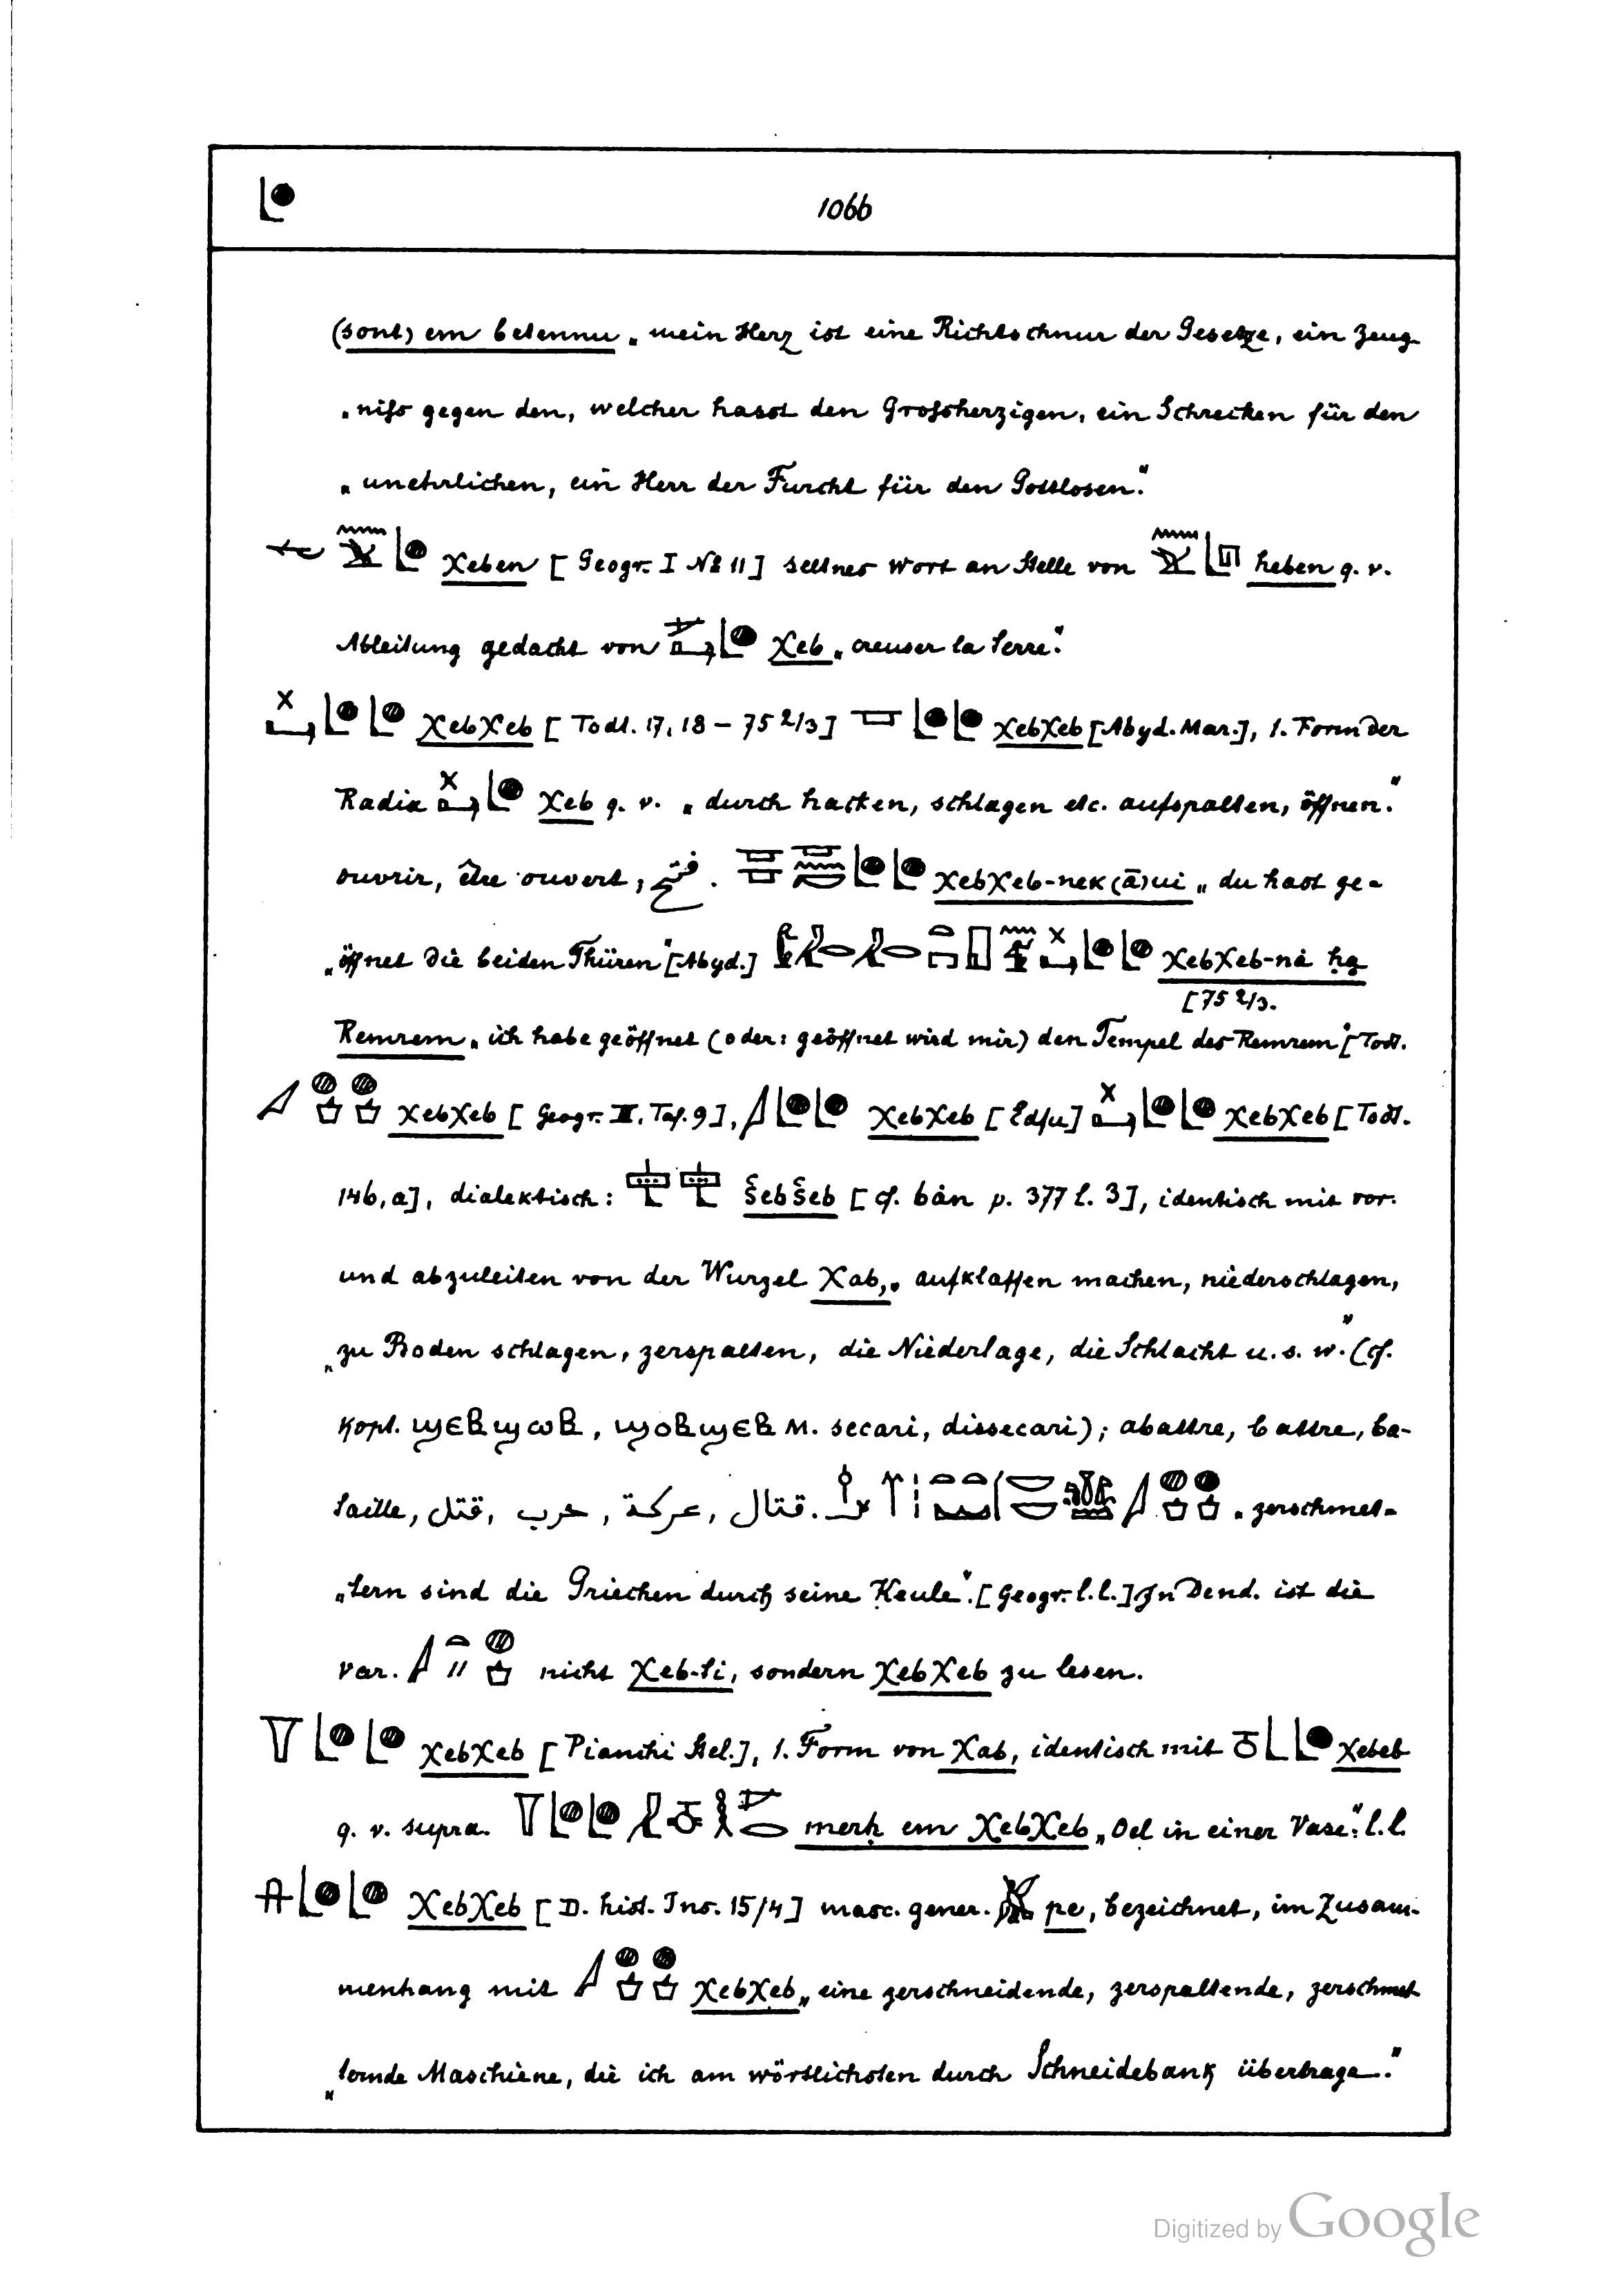 1066
(sont) em betennu „mein Herz ist eine Richtschnur der Gesetze, ein Zeug-
„niſs gegen den, welcher hasst den Groſsherzigen, ein Schrecken für den
„unehrlichen, ein Herr der Furcht für den Gottlosen."
χeben [Geogr. I № 11] seltnes Wort an Stelle von heben q. v.
Ableitung gedacht von χeb „creuser la terre."
χebχeb [Todt. 17, 18 – 75 2/3] χebχeb [Abyd. Mar.], 1. Form der
Radix χeb q. v. „durch hacken, schlagen etc. aufspalten, öffnen."
ouvrir, être ouvert, فتح. χebχeb-nek (ā)ui „du hast ge-
„öffnet die beiden Thüren" [Abyd.] χebχeb-nȧ ḥa
[75 2/3.
Remrem „ich habe geöffnet (oder: geöffnet wird mir) den Tempel des Remrem" [Todt.
χebχeb [Geogr. III. Taf. 9], χebχeb [Edfu] χebχeb [Todt.
146, a], dialektisch: šebšeb [cf. bȧn p. 377 l. 3], identisch mit vor.
und abzuleiten von der Wurzel χab, „aufklaffen machen, niederschlagen,
„zu Boden schlagen, zerspalten, die Niederlage, die Schlacht u. s. w." (cf.
kopt. ϣⲉⲃϣⲱⲃ, ϣⲟⲃϣⲉⲃ M. secari, dissecari); abattre, battre, ba-
taille, قتل, حرب, عركة, قتال. „zerschmet-
„tern sind die Griechen durch seine Keule". [Geogr. l. l.] In Dend. ist die
var. nicht χeb-ti, sondern χebχeb zu lesen.
χebχeb [Pianchi Stel.], 1. Form von χab, identisch mit χebeb
q. v. supra. merḥ em χebχeb „Oel in einer Vase". l. l.
χebχeb [D. hist. Ins. 15/4] masc. gener. pe, bezeichnet, im Zusam-
menhang mit χebχeb „eine zerschneidende, zerspaltende, zerschmet
„ternde Maschiene, die ich am wörtlichsten durch Schneidebank übertrage."
Digitized by Google